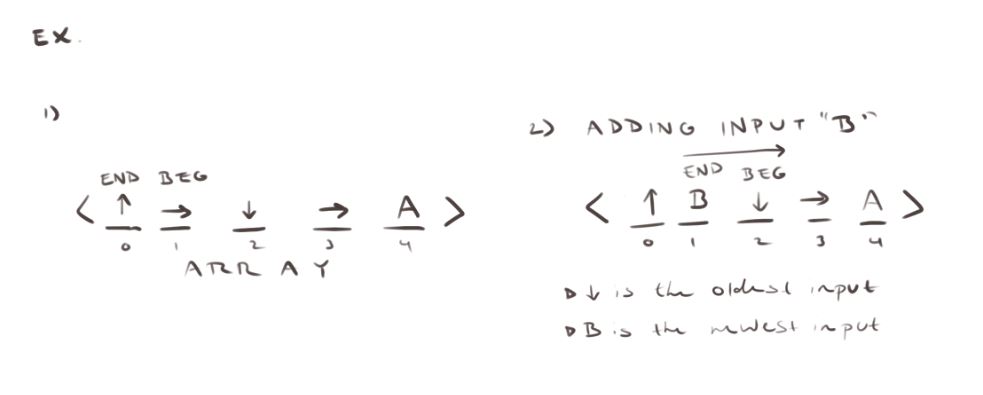 EX.
1)
END BEG
< ↑ → ↓ → A >
0 1 2 3 4
ARRAY
2) ADDING INPUT "B"
END BEG
< ↑ B ↓ → A >
0 1 2 3 4
▷ ↓ is the oldest input
▷ B is the newest input